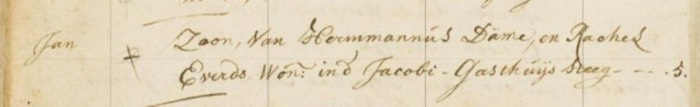 Jan + Zoon, Van Hermmannüs Däme, en Rachel
Everds Won: ind Jacobi-Gasthüijs steeg - - - . 5.